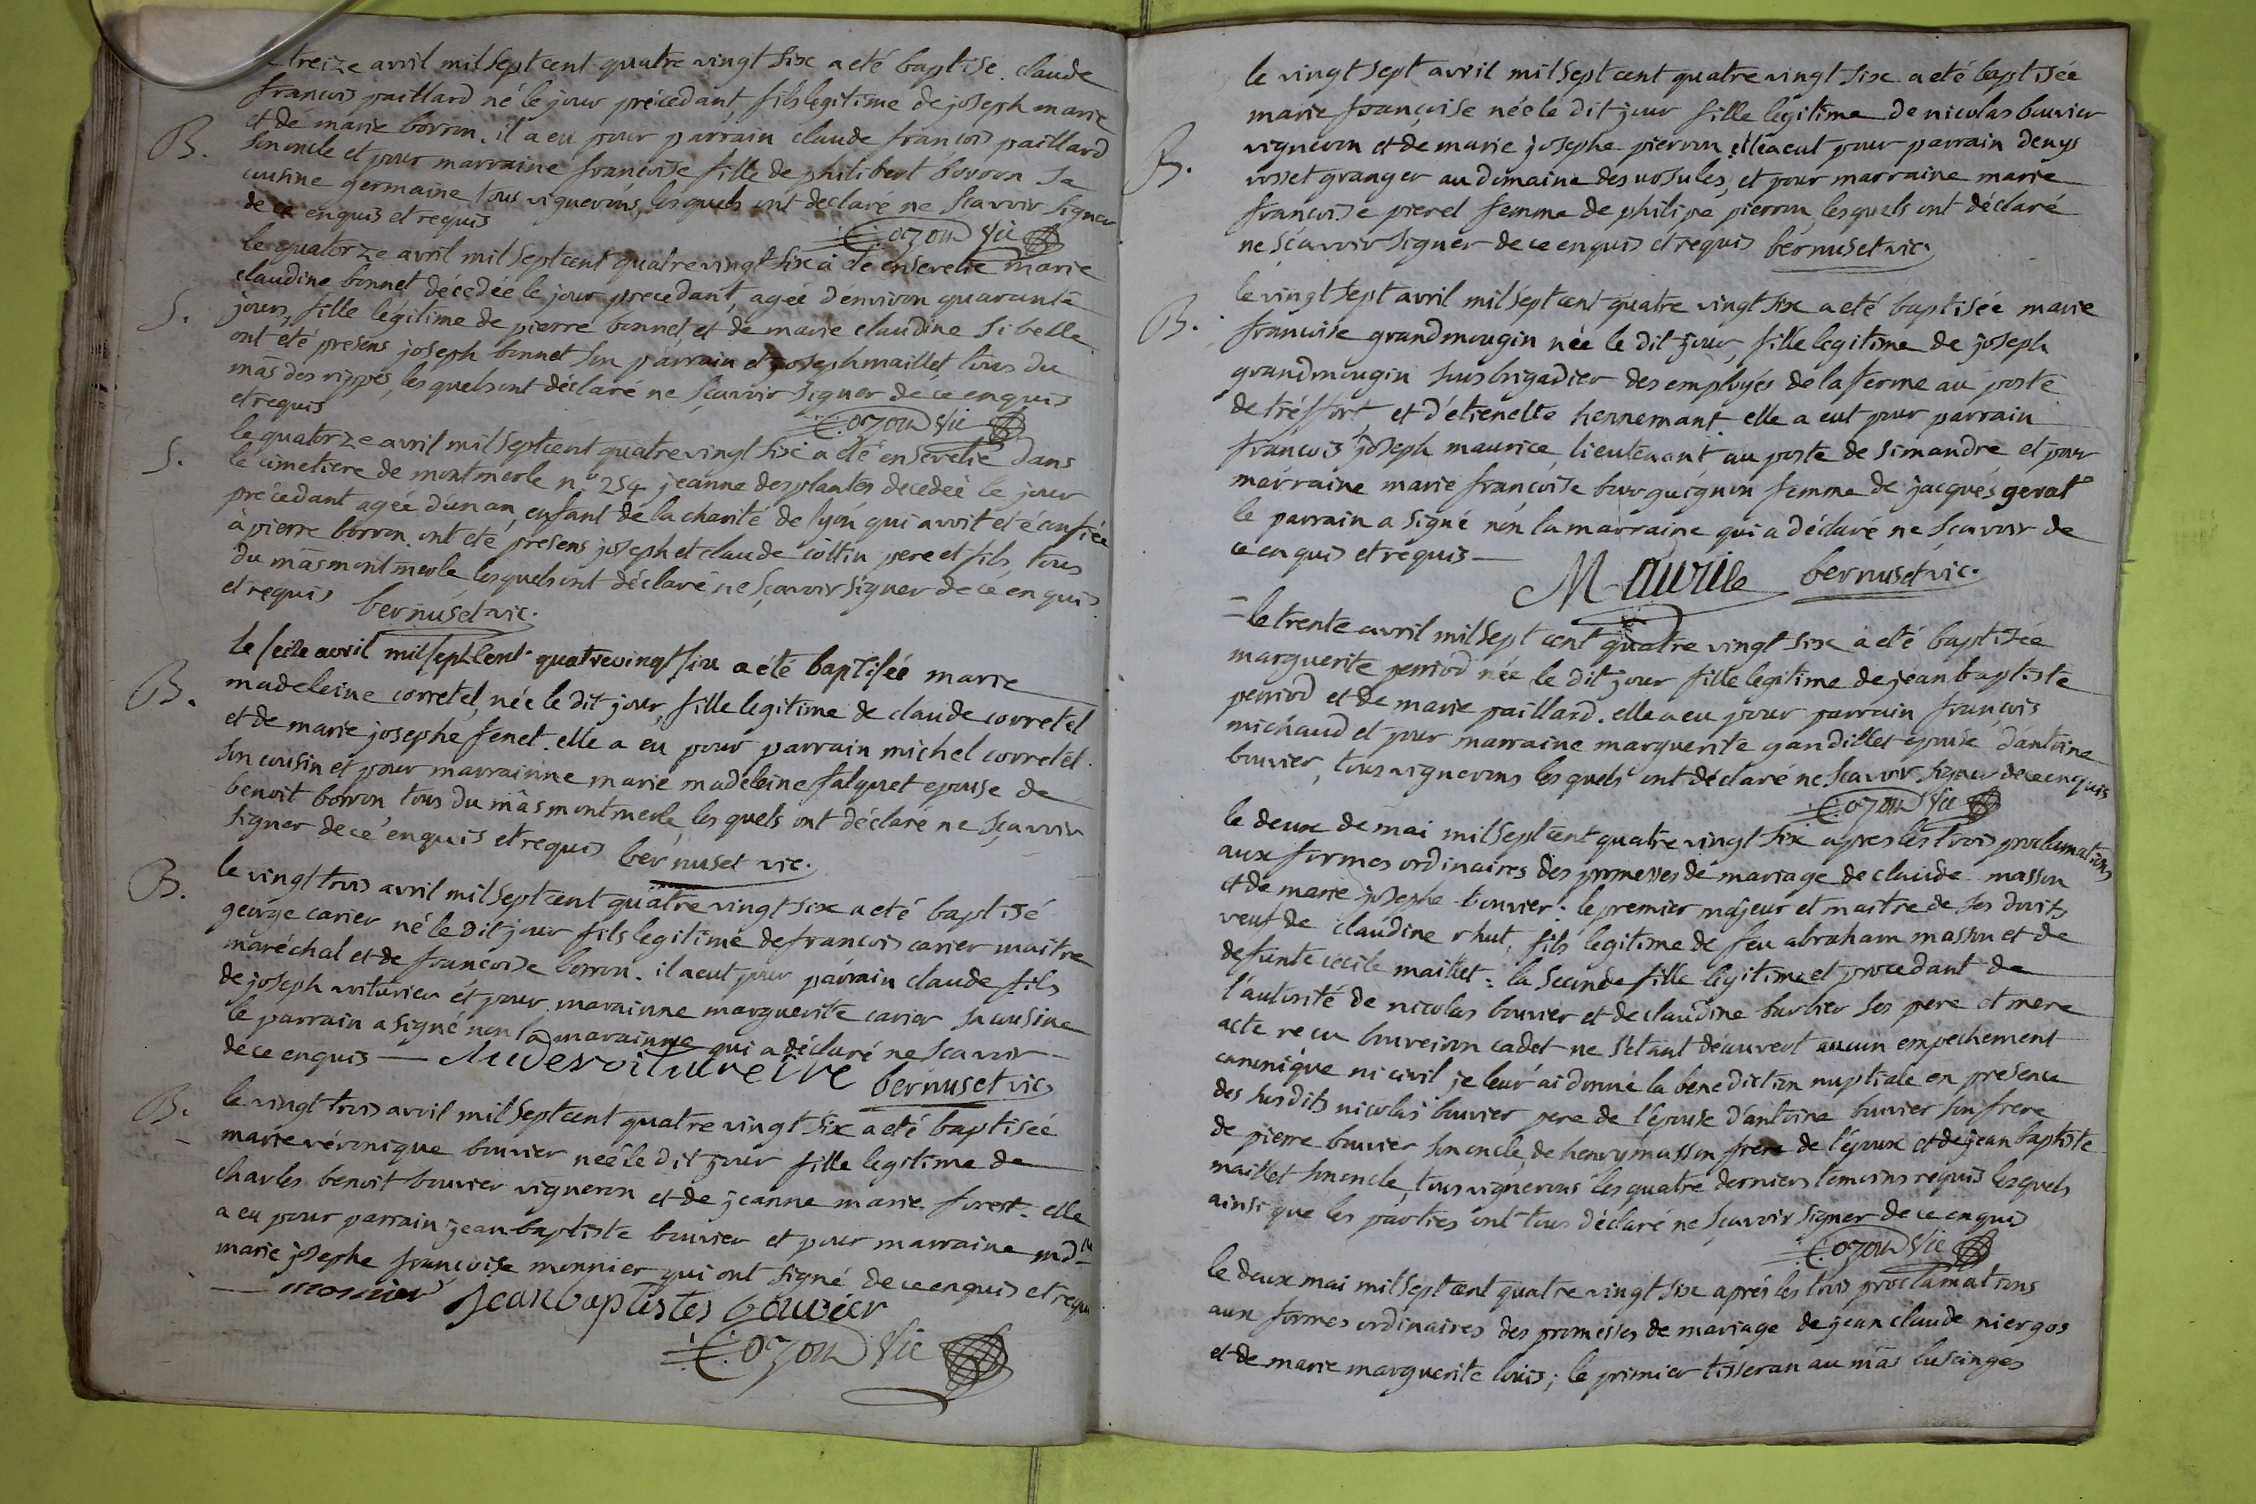 treize avril mil sept cent quatre vingt six a eté baptisé claude
francois paillard né le jour précedant, fils legitime de joseph marie
et de marie borron. il a eu pour parrain claude françois paillard
B. son oncle et pour marraine françoise fille de philibert borron sa
cousine germaine tous vignerons, lesquels ont declaré ne scavoir signer
de ce enquis et requis Cozon vic
le quatorze avril mil sept cent quatre vingt six a eté ensevelie marie
claudine bonnet décédée le jour précedant, agée d'environ quarante
S. jours, fille légitime de pierre bonnet et de marie claudine sibelle
ont eté presens joseph bonnet son parrain et joseph maillet tous du
mas des rippes, lesquels ont déclaré ne scavoir signer de ce enquis
et requis Cozon vic
le quatorze avril mil sept cent quatre vingt six a eté ensevelie dans
S. le cimetiere de montmerle n.º 254 jeanne desplantes decedeé le jour
précedant agée d'un an, enfant de la charité de lyon qui avoit eté confiée
à pierre borron. ont eté presens joseph et claude cottin pere et fils, tous
du mas montmerle, lesquels ont déclaré ne sçavoir signer de ce enquis
et requis bernuset vic.
le seize avril mil sept cent quatre vingt six a été baptisée marie
B. madeleine corretel, née le dit jour, fille legitime de claude corretel
et de marie josephe fenet. elle a eu pour parrain michel corretel
son cousin et pour marrainne marie madeleine falquet epouse de
benoit borron tous du mas montmerle, lesquels ont déclaré ne sçavoir
signer de ce enquis et requis bernuset vic.
B. le vingt trois avril mil sept cent quatre vingt six a eté baptisé
george carier né le dit jour fils legitime de francois carier maitre
maréchal et de francoise borron. il a eut pour parrain claude fils
de joseph voiturier et pour marainne marguerite carier sa cousine
le parrain a signé non la marainne qui a déclaré ne scavoir
de ce enquis — bernuset vic
B. le vingt trois avril mil sept cent quatre vingt six a eté baptisée
marie véronique bouvier neé le dit jour fille legitime de
charles benoit bouvier vigneron et de jeanne marie forest. elle
a eu pour parrain jean baptiste bouvier et pour marraine md.lle
marie josephe françoise monnier qui ont signé de ce enquis et requis
— monnier Jean baptistes bouvier
Cozon vic
le vingt sept avril mil sept cent quatre vingt six a eté baptisée
marie françoise née le dit jour fille légitime de nicolas bouvier
B. vigneron et de marie josephe pierron elle a eut pour parrain denys
rosset granger au domaine des ursules, et pour marraine marie
françoise pierel femme de philipe pierron, lesquels ont déclaré
ne sçavoir signer de ce enquis et requis bernuset vic.
le vingt sept avril mil sept cent quatre vingt six a eté baptisée marie
B. francoise grandmougin née le dit jour, fille legitime de joseph
grandmougin sous brigadier des employés de la ferme au poste
de tréffort et d'etienette hennemant. elle a eut pour parrain
francois joseph maurice, lieutenant au poste de simandre et pour
marraine marie francoise bourguignon femme de jacques gerat
le parrain a signé non la marraine qui a déclaré ne sçavoir de
ce enquis et requis — Maurice bernuset vic.
= le trente avril mil sept cent quatre vingt six a eté baptisée
marguerite perriod née le dit jour fille legitime de jean baptiste
perriod et de marie paillard. elle a eu pour parrain françois
michaud et pour marraine marguerite gandillet epouse d'antoine
bouvier, tous vignerons lesquels ont déclaré ne scavoir signer de ce enquis
Cozon vic
le deux de mai mil sept cent quatre vingt six apres les trois proclamations
aux formes ordinaires des promesses de mariage de claude masson
et de marie josephe bouvier: le premier majeur et maitre de ses droits
veuf de claudine rhut, fils legitime de feu abraham masson et de
defunte cecile maillet: la seconde fille legitime et procedant de
l'autorité de nicolas bouvier et de claudine barbier ses pere et mere
acte recu bouveiron cadet ne s'étant découvert aucun empechement
canonique ni civil je leur ai donné la benediction nuptiale en présence
des susdits nicolas bouvier pere de l'épouse d'antoine bouvier son frere
de pierre bouvier son oncle, de henry masson frere de l'époux et de jean baptiste
maillet son oncle, tous vignerons les quatre derniers temoins requis lesquels
ainsi que les parties ont tous déclaré ne sçavoir signer de ce enquis
Cozon vic
le deux mai mil sept cent quatre vingt six aprés les trois proclamations
aux formes ordinaires des promesses de mariage de jean claude niergos
et de marie marguerite louis; le premier tisseran au mas lusinges